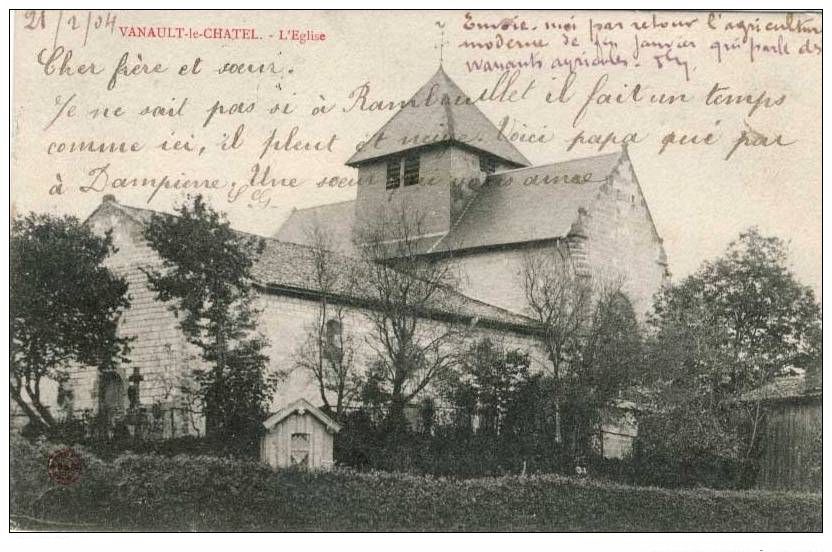 21/2/04
VANAULT-le-CHATEL. - L'Eglise
Envoie-moi par retour l'agriculture
moderne de fin Janvier qui parle des
agricoles.
Cher frère et sœur.
Je ne sait pas si à Rambouillet il fait un temps
comme ici, il pleut et neige. Voici papa qui par
à Dampierre. Une sœur qui vous aime